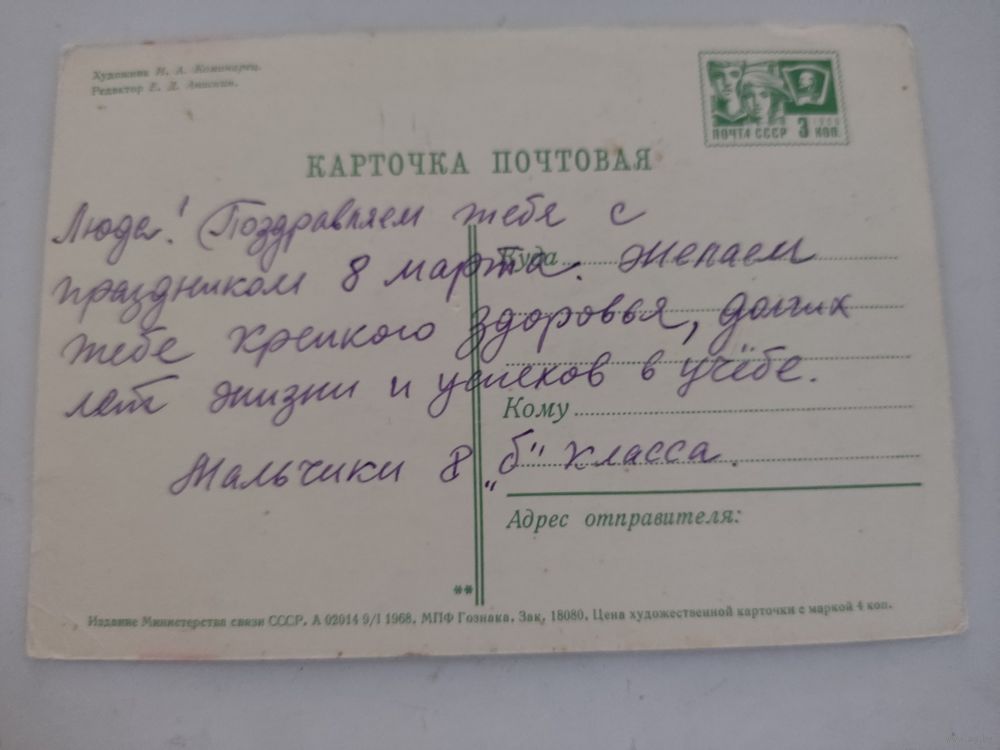 Художник И. А. Комарец.
Редактор Е. Д. Анискин.
1966
ПОЧТА СССР 3 КОП.
КАРТОЧКА ПОЧТОВАЯ
Люда! Поздравляем тебя с
Куда
праздником 8 марта. Желаем
тебе крепкого здоровья, долгих
лет жизни и успехов в учёбе.
Кому
Мальчики 8 „б" класса.
Адрес отправителя:
**
Издание Министерства связи СССР. А 02014 9/I 1968. МПФ Гознака. Зак. 18080. Цена художественной карточки с маркой 4 коп.